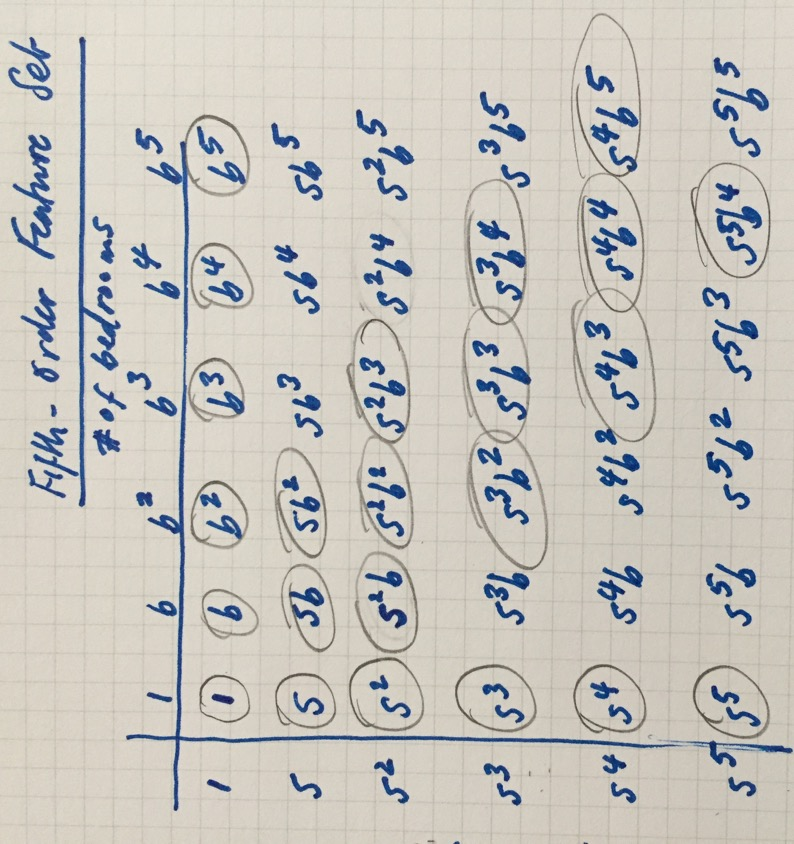 Fifth-Order Feature Set
# of bedrooms
1 b b² b³ b⁴ b⁵
1 1 b b² b³ b⁴ b⁵
s s sb sb² sb³ sb⁴ sb⁵
s² s² s²b s²b² s²b³ s²b⁴ s²b⁵
s³ s³ s³b s³b² s³b³ s³b⁴ s³b⁵
s⁴ s⁴ s⁴b s⁴b² s⁴b³ s⁴b⁴ s⁴b⁵
s⁵ s⁵ s⁵b s⁵b² s⁵b³ s⁵b⁴ s⁵b⁵